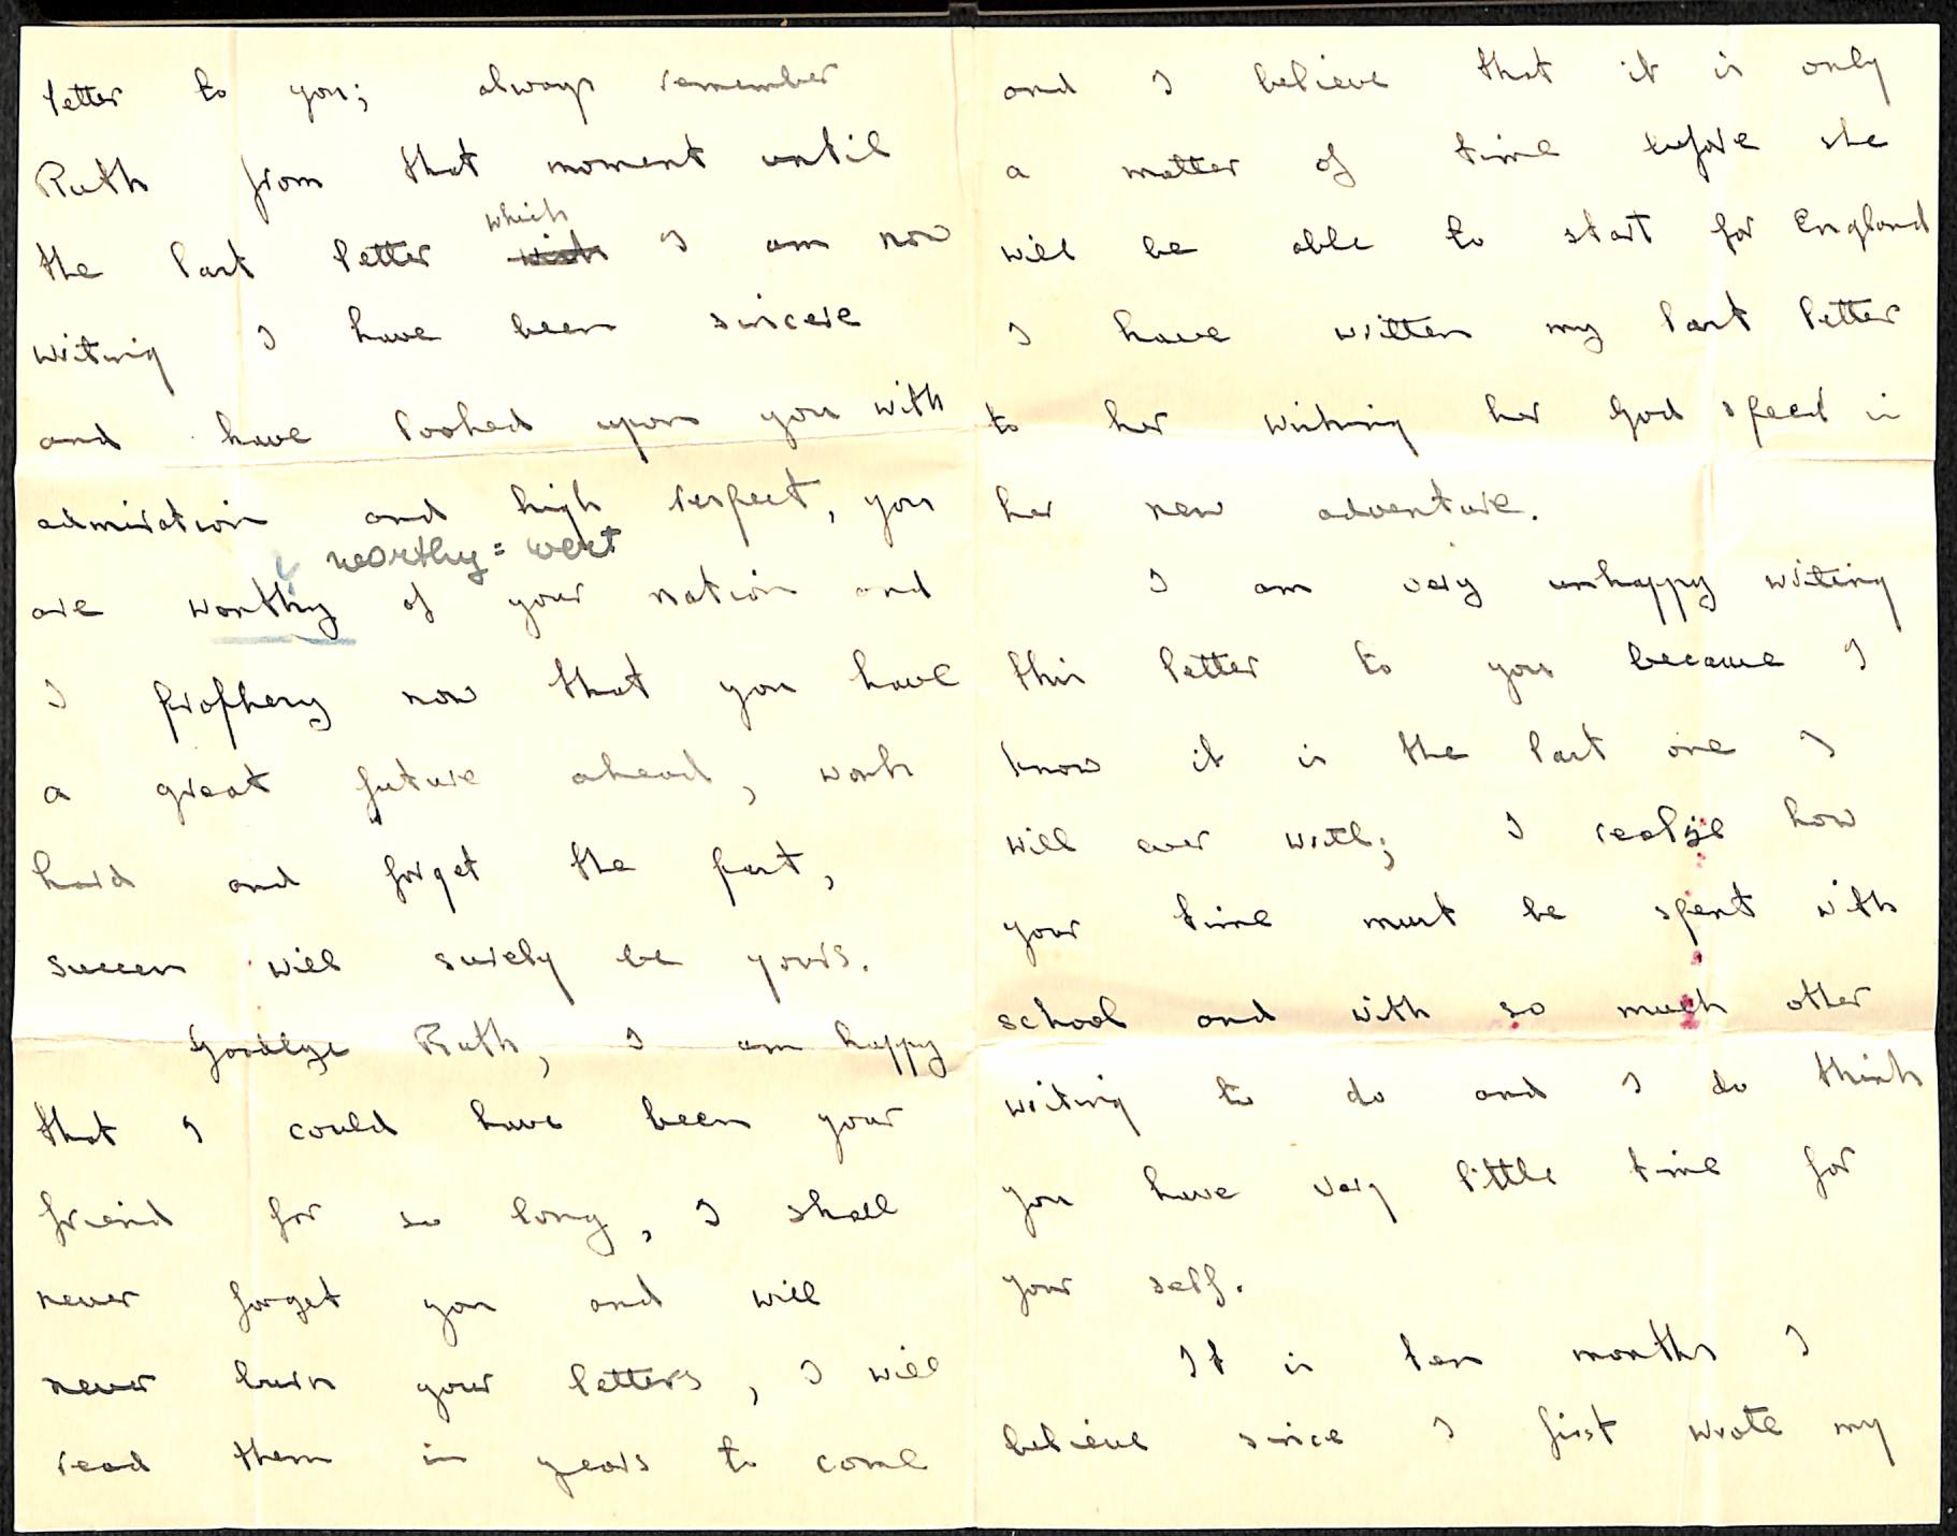 letter to you; always remember
Ruth from that moment until
which
the last letter wich I am now
writing I have been sincere
and have looked upon you with
admiration and high respect, you
worthy = wert
are worthy of your nation and
I prophesy now that you have
a great future ahead, work
hard and forget the past,
success will surely be yours.
Goodbye Ruth, I am happy
that I could have been your
friend for so long, I shall
never forget you and will
never burn your letters, I will
read them in years to come
and I believe that it is only
a matter of time before she
will be able to start for England
I have written my last letter
to her wishing her God speed in
her new adventure.
I am very unhappy writing
this letter to you because I
know it is the last one I
will ever write; I realise how
your time must be spent with
school and with so much other
writing to do and I do think
you have very little time for
your self.
It is ten months I
believe since I first wrote my